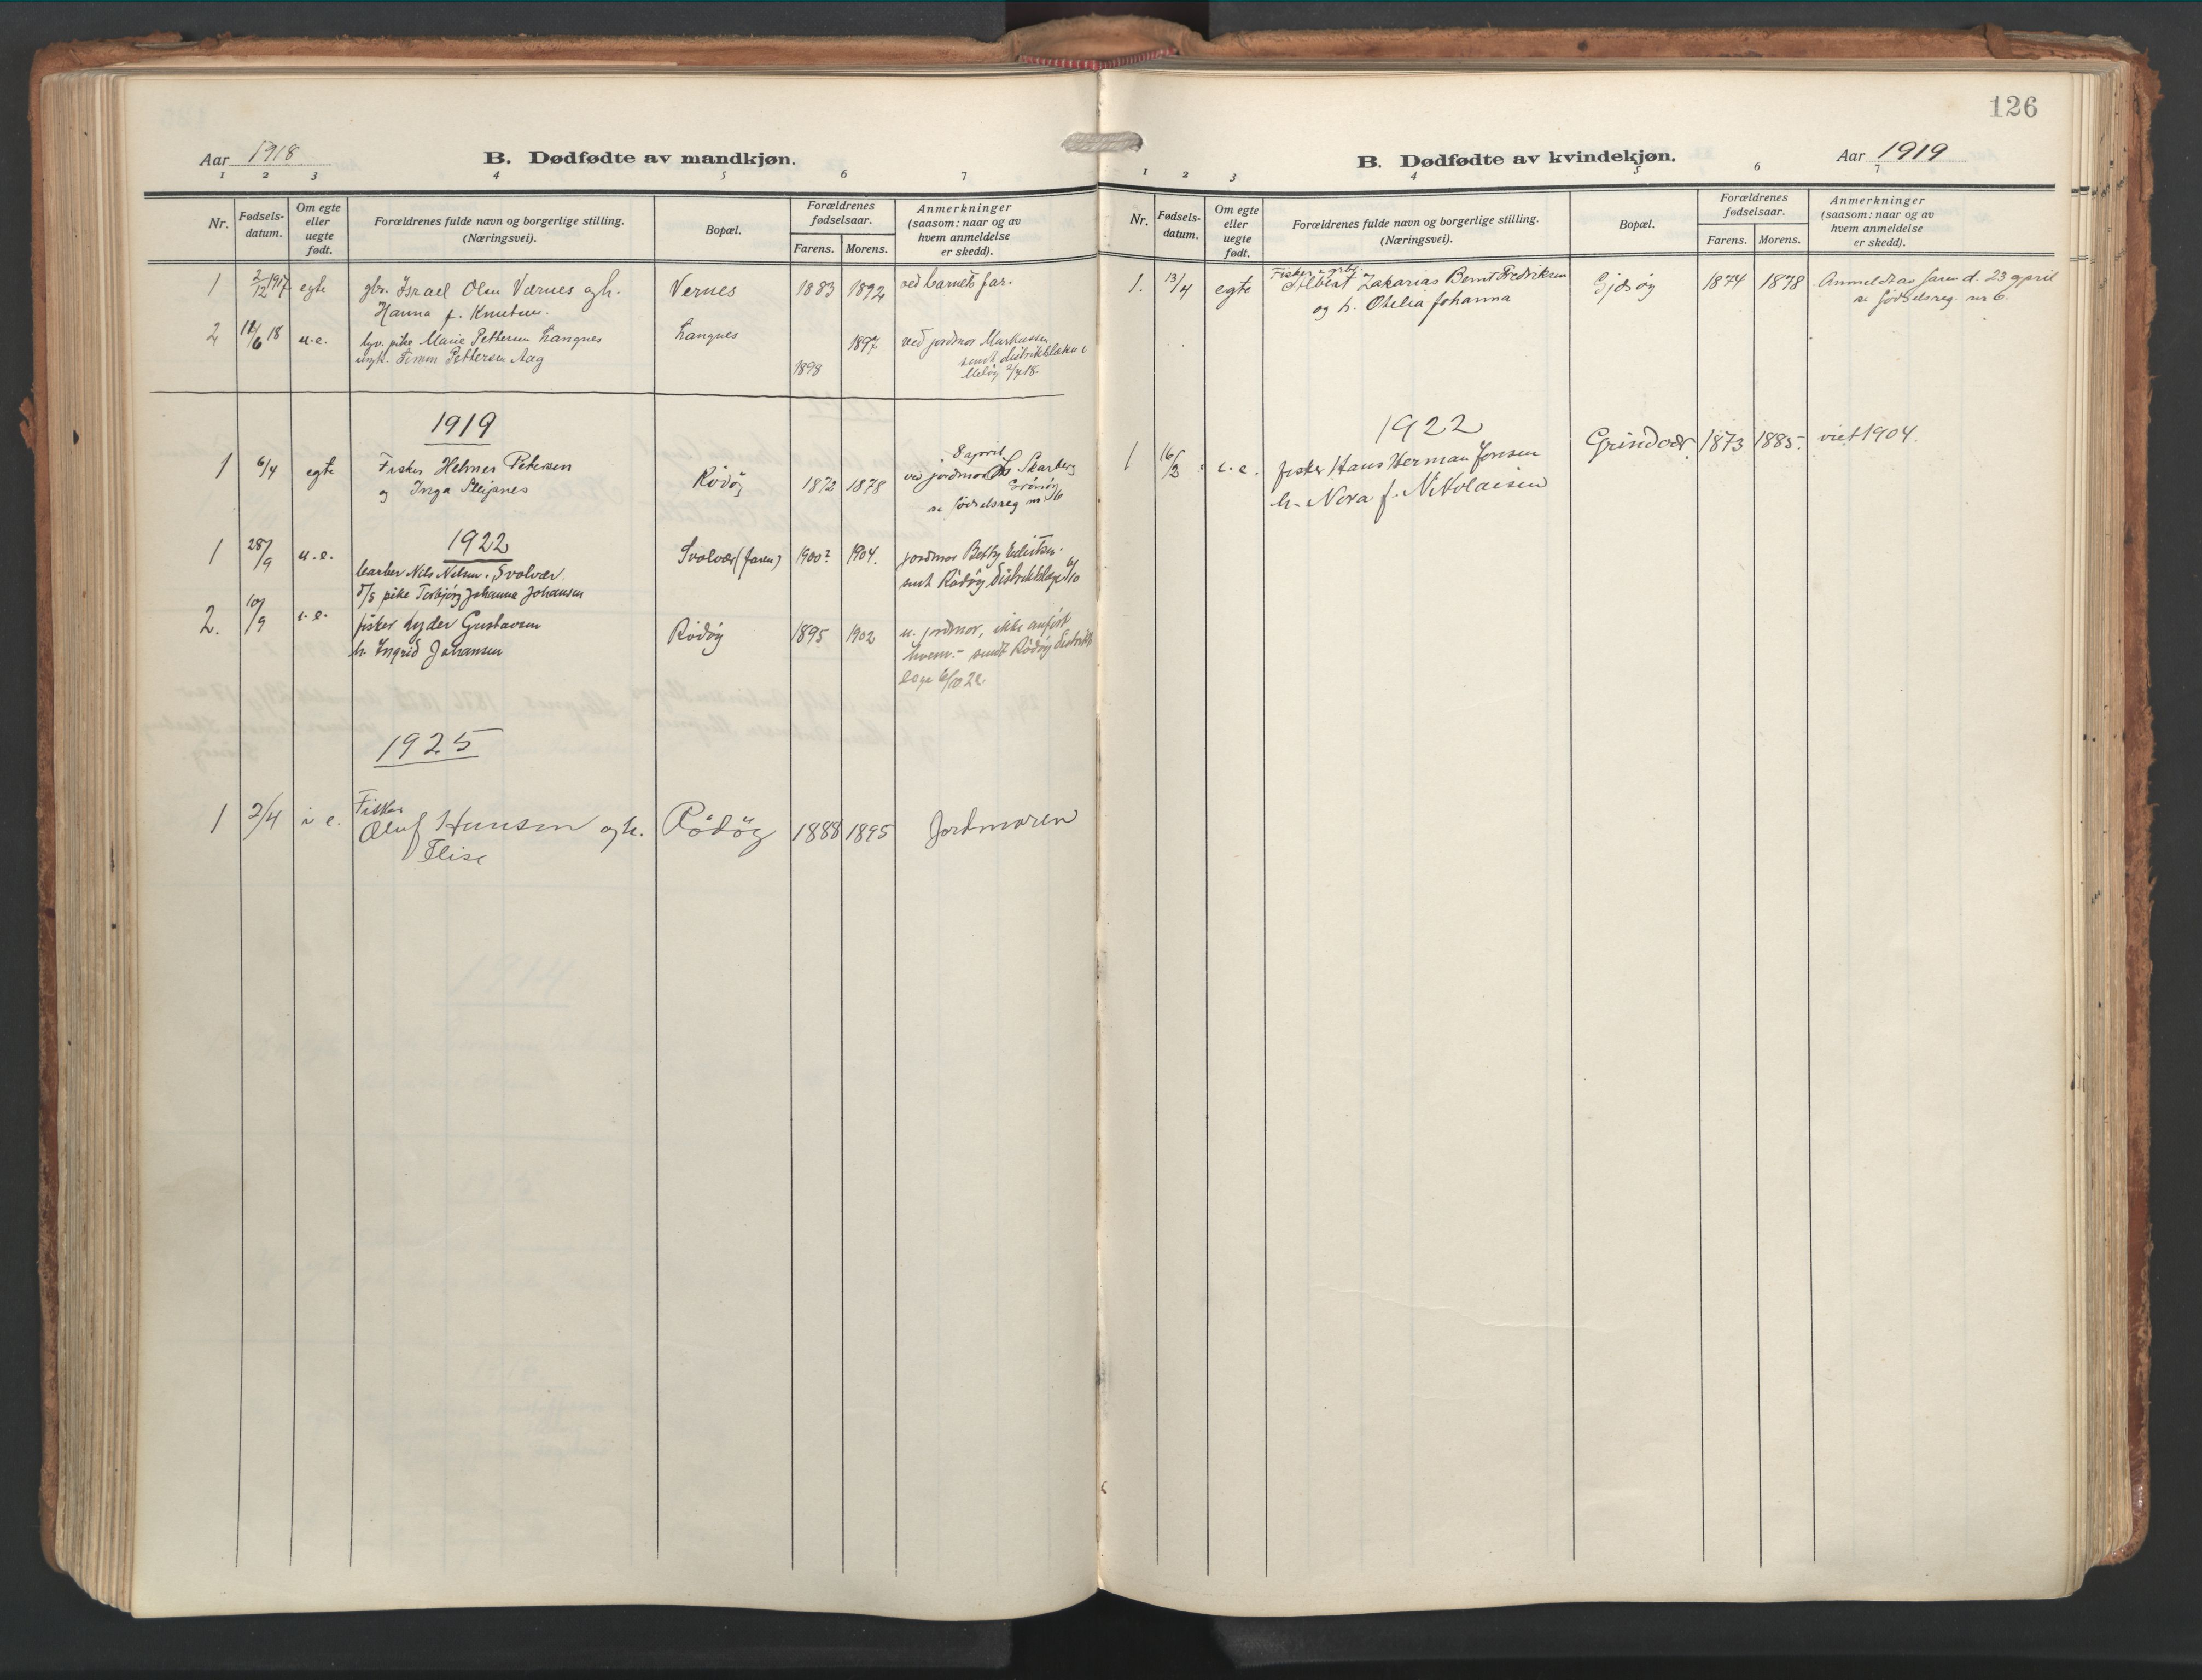 Aar 1918
B. Dødfødte av mandkjøn.
1 2 3 4 5 6 7
Nr.
Fødsels-
datum.
Om egte
eller
uegte
født.
Forældrenes fulde navn og borgerlige stilling.
(Næringsvei).
Bopæl.
Forældrenes
fødselsaar.
Farens. Morens.
Anmerkninger
(saasom: naar og av
hvem anmeldelse
er skedd).
1 2/12 1917 egte gbr. Israel Olsen Værnes og h. Vernes 1883 1892 ved barnets far.
Hanna f. Knutsen.
2 12/6 18 u.e. tjv. pike Marie Pettersen Langnes Langnes 1897 ved jordmor Markussen
ungk. Simon Pettersen Aag 1898 samt distriktslæken i
Meløy 2/7 18.
1919
8 april
1 6/4 egte Fisker Helmer Petersen Rødøy 1872 1878 ved jordmor Skarberg
og Inga Sleipnes
se fødselsreg nr. 16
1922
1 28/9 u.e. Svolvær (faren) 1900? 1904. jordmor Betty
barber Nils Nilsen, Svolvær samt Rødøy Distriktslæge 6/10
pike Torbjørg Johanna Johansen
2. 10/9 i.e. fisker Lyder Gustavsen Rødøy 1895 1902 u. jordmor, ikke anført
h. Ingrid Johansen hvem. - samt Rødøy Distrikts
læge 6/10 22.
1925
1 2/4 i e. Fisker
Oluf Hansen og h. Rødøy 1888 1895 Jordmoren
Elise
126
B. Dødfødte av kvindekjøn.
Aar 1919
1 2 3 4 5 6 7
Nr.
Fødsels-
datum.
Om egte
eller
uegte
født.
Forældrenes fulde navn og borgerlige stilling.
(Næringsvei).
Bopæl.
Forældrenes
fødselsaar.
Farens. Morens.
Anmerkninger
(saasom: naar og av
hvem anmeldelse
er skedd).
Fisker og grbr.
1. 13/4 egte Albert Zakarias Bernt Fredriksen Gjæsøy 1874 1878 Anmeldt av faren d. 23 april
og h. Otelia Johanna se fødselsreg. nr 6.
1922
1 16/2 i.e. fisker Hans Herman Jonsen Grindvær. 1873 1885. viet 1904.
h. Nora f. Nikolaisen